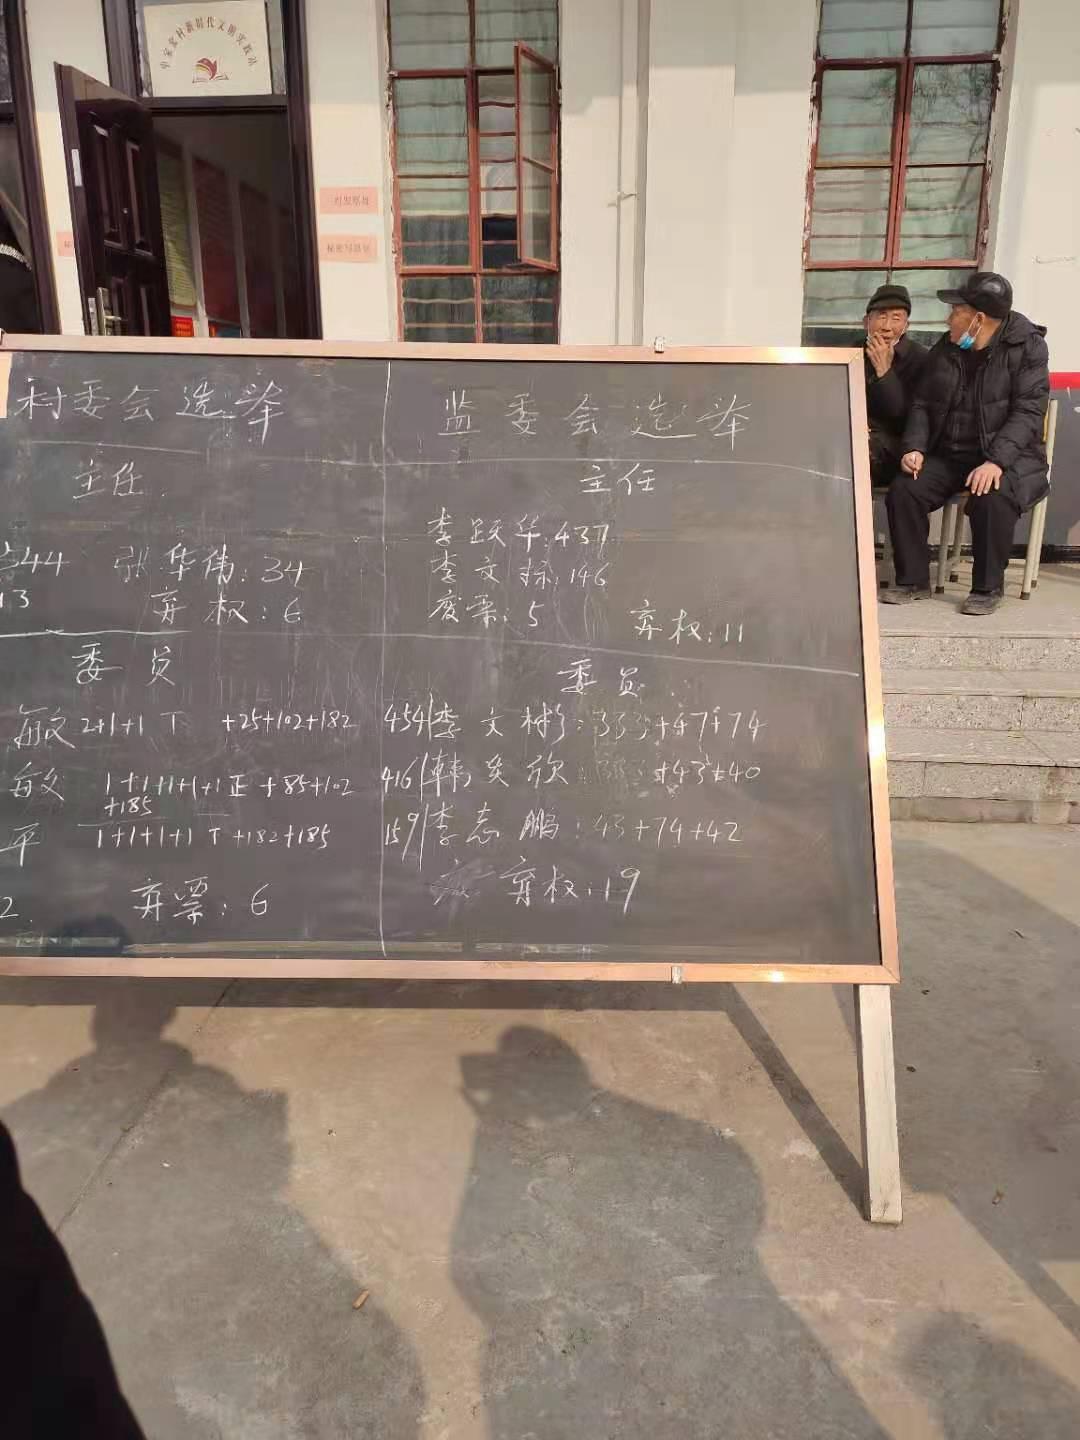 村委会选举
主任
544 张华伟:34
13 弃权:6
委员
敏文 2+1+1 丅 +25+102+182
敏 1+1+1+1+1正+85+102
+185
平 1+1+1+1丅+182+185
2. 弃票:6
监委会选举
主任
李跃华:437
李文标:146
废票:5 弃权:11
委员
454 李文彬:333+47+74
416 韩炎欣:333+43+40
159 李志鹏:43+74+42
弃权:19
新时代文明实践站